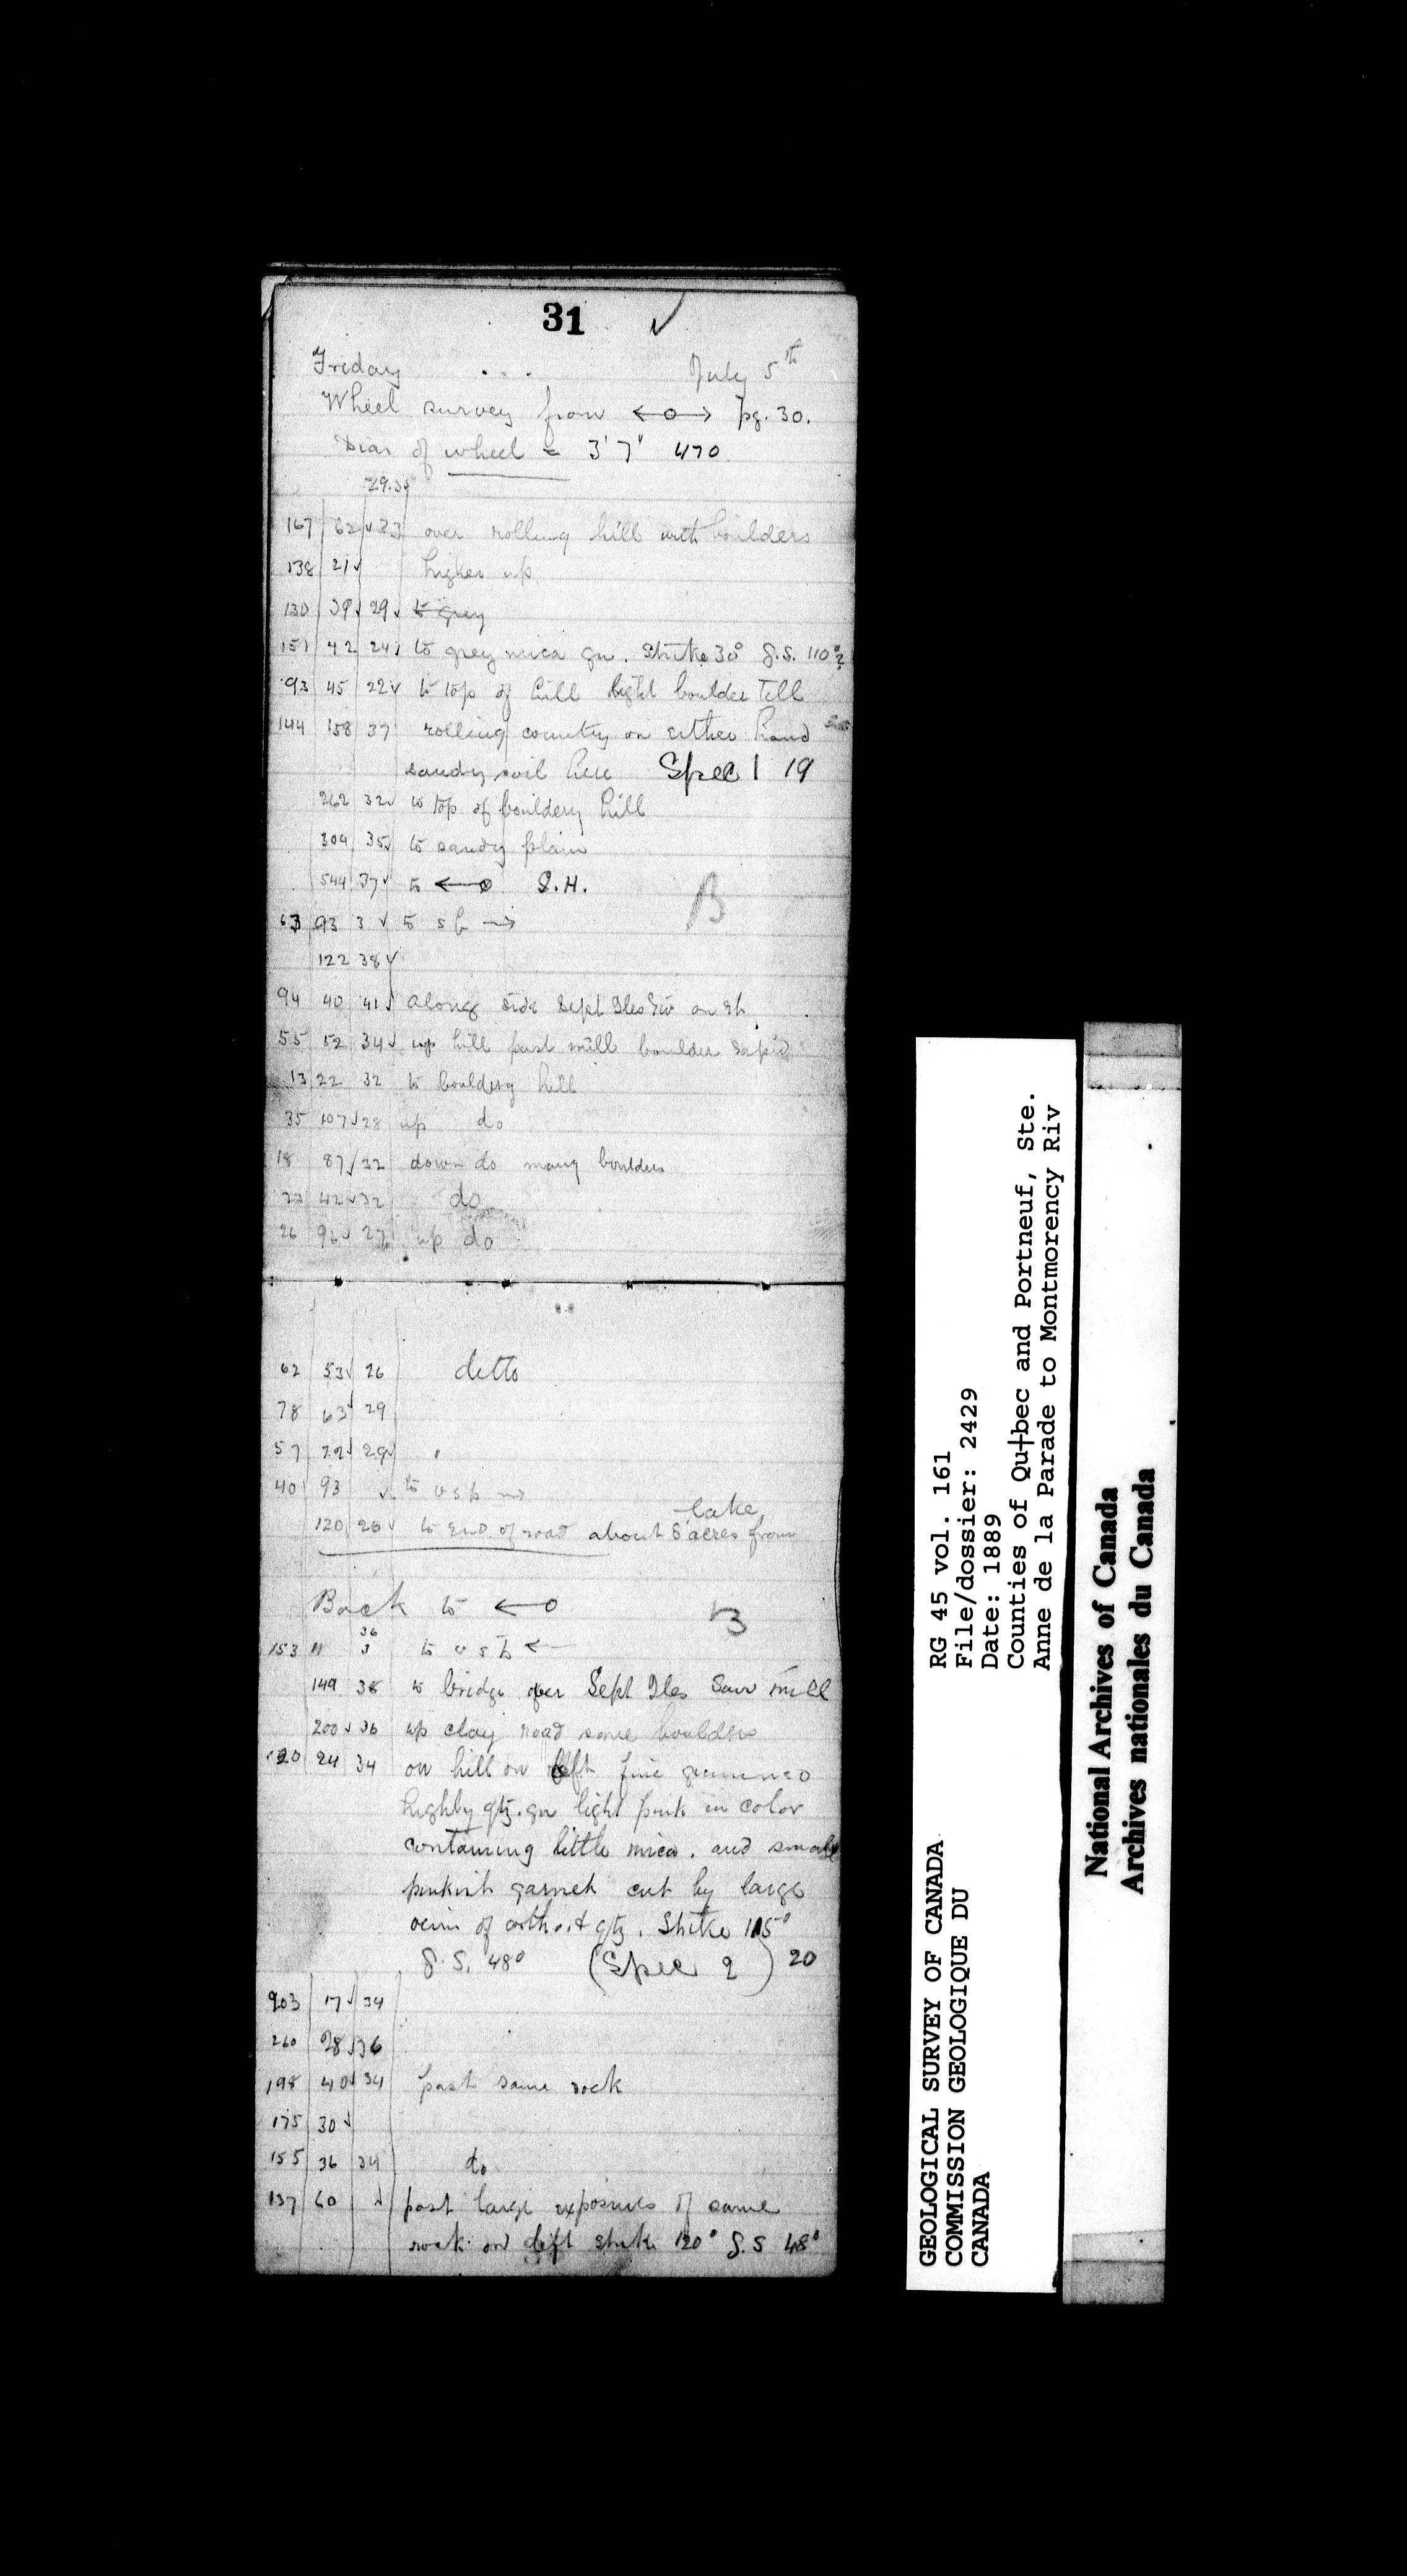 31 ✓
Friday . . . July 5th
Wheel survey from ←o→ pg. 30.
Diar of wheel = 3' 7" 470
29.3
167 62 ✓ 33 over rolling hill with boulders
138 21 ✓ higher up
130 39 ✓ 29 ✓ to grey
151 42 24 ✓ to grey mica gn. Strike 30° S.S. 110°?
93 45 22 ✓ to top of hill light boulder Till
144 158 37 rolling country on either hand
sandy soil here Spec 1 19
262 32 ✓ to top of bouldery hill
304 35 ✓ to sandy plain
544 37 ✓ to ←o S.H.
B
63 93 3 ✓ to s b →
122 38 ✓
94 40 41 ✓ along side Sept Iles on
55 52 34 ✓ up hill past mill boulder
13 22 32 to bouldery hill
35 107 ✓ 28 up do
18 87 ✓ 32 down do many boulders
22 42 ✓ 32 do
26 96 ✓ 27 up do
62 53 ✓ 26 ditto
78 63 ✓ 29
57 72 ✓ 29 ✓
40 93 ✓ to v s b →
lake
120 26 ✓ to end of road about 8 acres from
Back to ←o B
36
153 11 3 to v s b ←
149 38 to bridge over Sept Iles Saw mill
200 ✓ 36 up clay road some boulders
120 24 34 on hill on left fine grained
highly qtz. gn light pink in color
containing little mica. and small
pinkish garnets cut by large
veins of orth. + qtz. Strike 115°
S. S. 48° (Spec 2) 20
203 17 ✓ 34
260 28 ✓ 36
198 40 ✓ 34 past same rock
175 30 ✓
155 36 34 do
137 60 ✓ past large exposures of same
rock on left strike 120° S.S 48°
GEOLOGICAL SURVEY OF CANADA
COMMISSION GEOLOGIQUE DU
CANADA
RG 45 vol. 161
File/dossier: 2429
Date: 1889
Counties of Qu†bec and Portneuf, Ste.
Anne de la Parade to Montmorency Riv
National Archives of Canada
Archives nationales du Canada